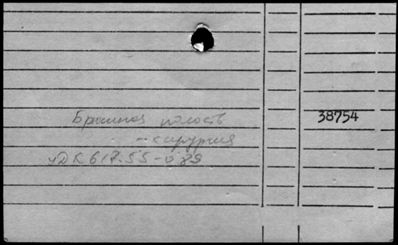 Брюшная полость
38754
— хирургия
УДК 617.55-089